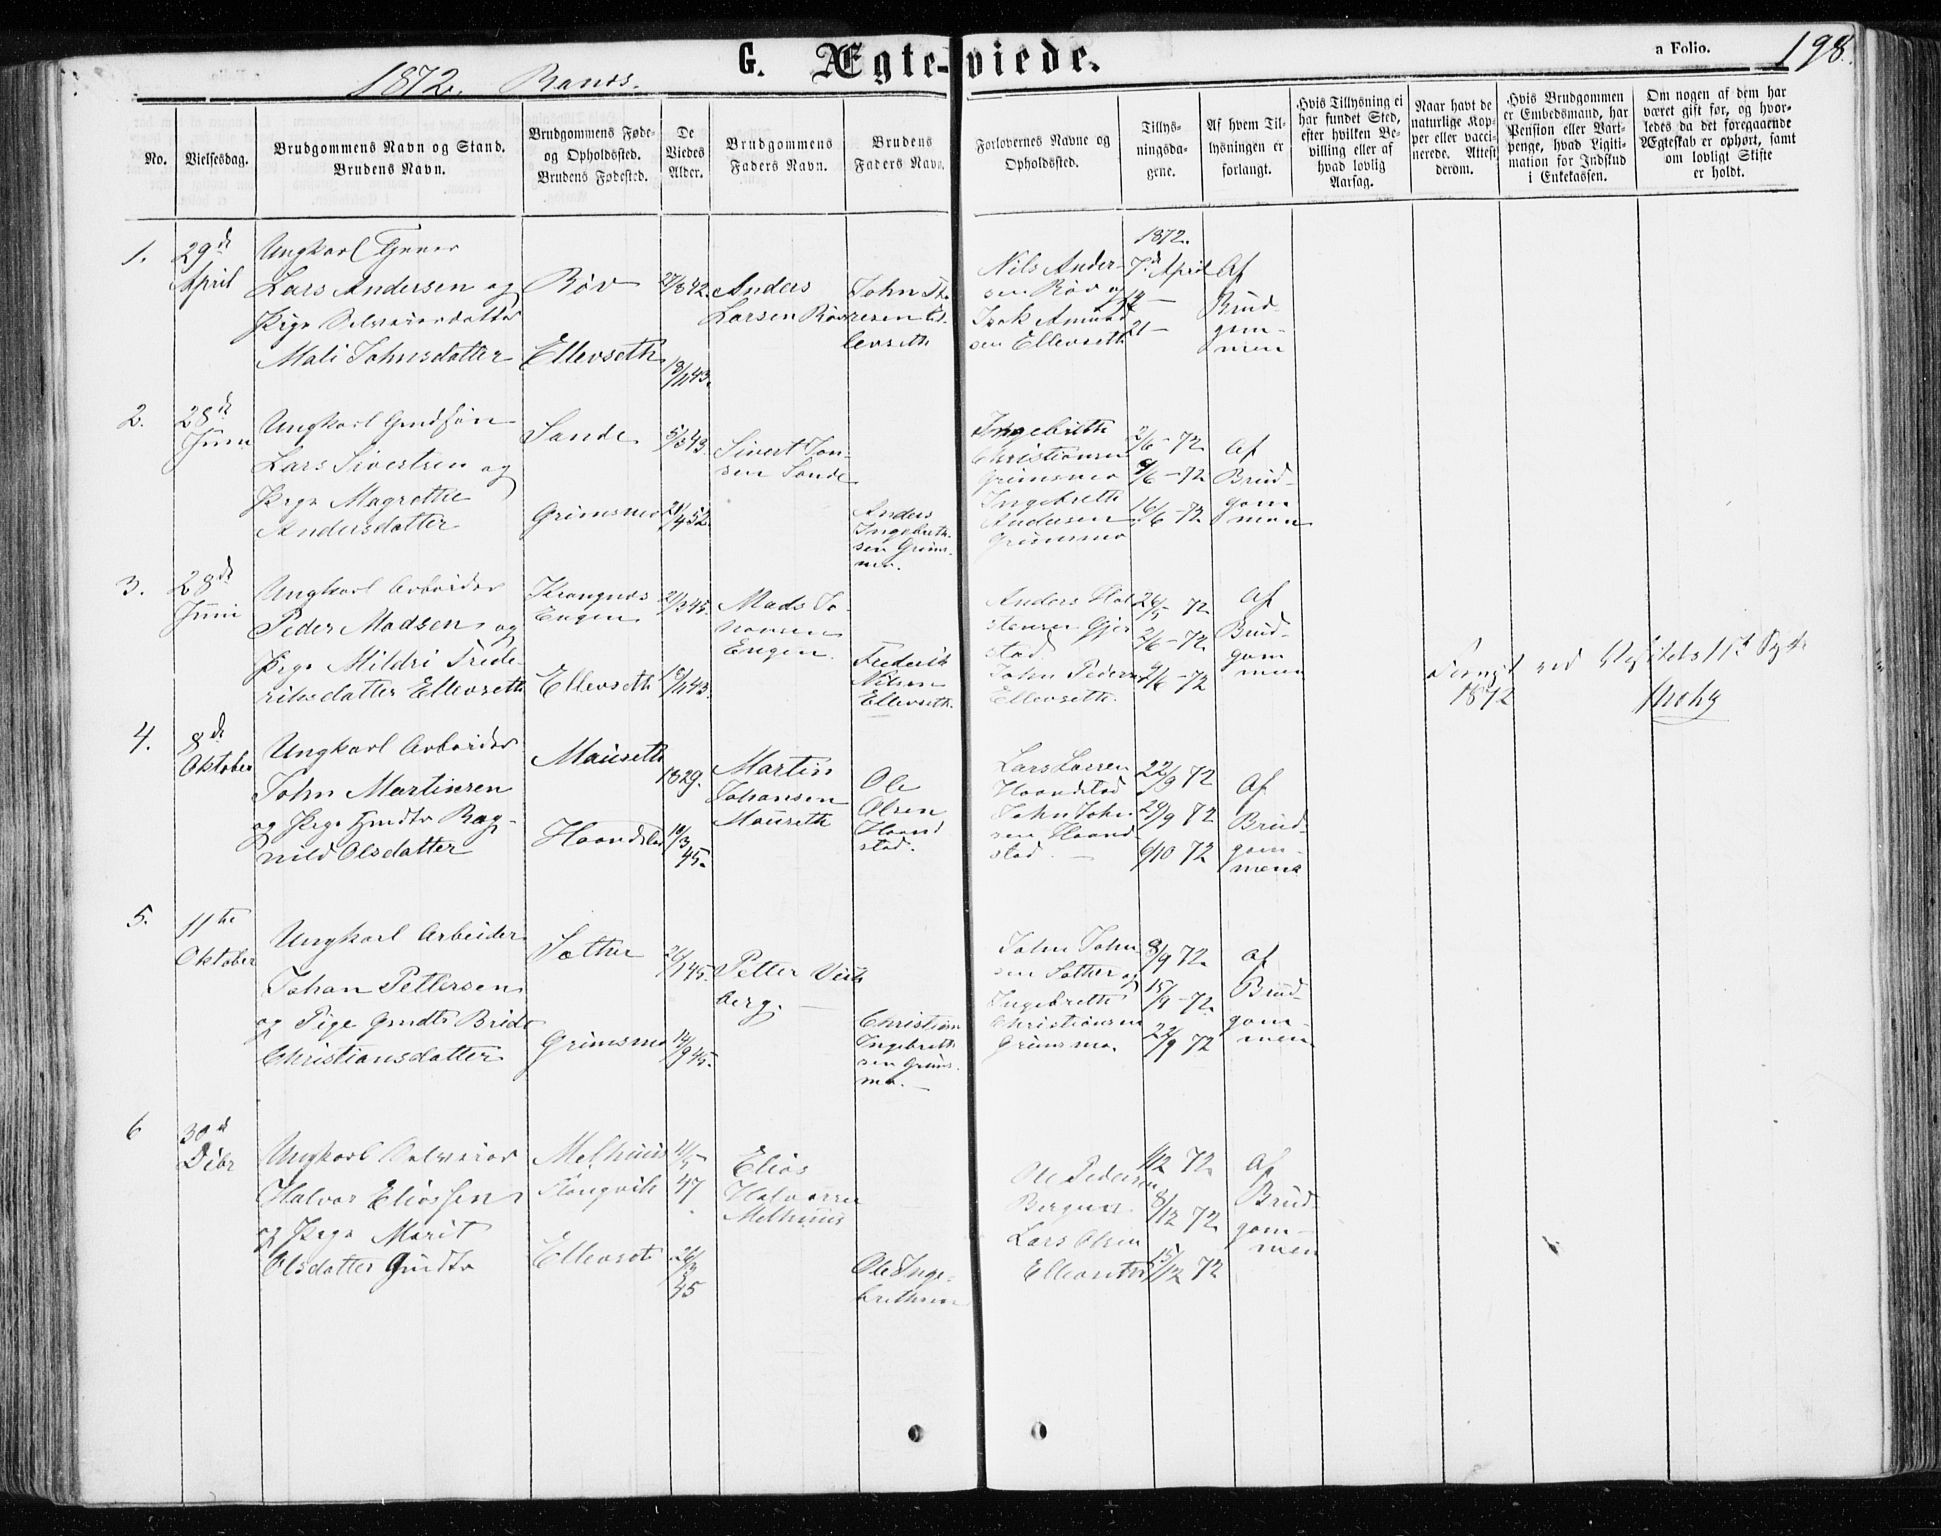 G. Ægte-viede.
a Folio.
198.
1872.
No.
Vielsesdag.
Brudgommens Navn og Stand.
Brudens Navn.
Brudgommens Føde-
og Opholdssted.
Brudens Fødested.
De
Viedes
Alder.
Brudgommens
Faders Navn.
Brudens
Faders Navn.
Forlovernes Navne og
Opholdssted.
Tillys-
ningsda-
gene.
Af hvem Til-
lysningen er
forlangt.
Hvis Tillysning ei
har fundet Sted,
efter hvilken Be-
villing eller af
hvad lovlig
Aarsag.
Naar havt de
naturlige Kop-
per eller vacci-
nerede. Attest
derom.
Hvis Brudgommen
er Embedsmand, har
Pension eller Vart-
penge, hvad Ligiti-
mation for Indskud
i Enkekassen.
Om nogen af dem har
været gift før, og hvor-
ledes da det foregaaende
Ægteskab er ophørt, samt
om lovligt Skifte
er holdt.
1.
29de
April
Ungkarl
Lars Andersen og
Pige
Mali Johnsdatter
Røv
Ellevseth
Anders
Larsen Røv
John
levseth
Nils Ander-
sen Røv og
Isak Amund
sen Ellevseth
1872.
7de April
14 —
21 —
Af
Brud-
gom-
men
2.
28de
Juni
Ungkarl
Lars Sivertsen og
Pige Magrethe
Andersdatter
Sande
Grimsmo
5/3 43.
21/4 52.
Sivert Jon-
sen Sande
Anders
Ingebreth-
sen Grims-
mo.
Ingebreth
Christiansen
Grimsmo
Ingebreth
Andersen
Grimsmo
2/6 - 72
9/6 - 72
16/6 - 72
Af
Brud-
gom
men
3.
28de
Juni
Ungkarl Arbeider
Peder Madsen og
Pige Mildri Frede-
riksdatter Ellevseth
Krangnes
Engen
Ellevseth
Mads Jo-
hansen
Engen.
Frederik
Nilsen
Ellevseth.
Anders Hal
stensen Gjer
stad.
John Peders
Ellevseth.
26/5 - 72
2/6 - 72
9/6 - 72
Af
Brud-
gom
men
1872
4.
8de
Oktober
Ungkarl Arbeider
John Martinsen
og Pige Gmdtr Rag-
nild Olsdatter
Mauseth
Haandstad
1829.
10/3
45.
Martin
Johansen
Mauseth
Ole
Olsen
Haand
stad.
Lars Larsen
Haandstad
John John
sen Haand-
stad. —
22/9 72
29/9 72
6/10 72
Af
Brud-
gom-
mens
5.
11te
Oktober
Ungkarl Arbeider
Johan Pettersen
og Pige Gmdtr Brid
Christiansdatter
Sæther
Grimsmo
Petter Viik
berg. —
Christian
Ingebreth
sen Grims.
mo. —
John John
sen Sæther og
Ingebreth
Christiansen
Grimsmo.
8/9 72
15/9 - 72
22/9 72
af
Brud-
gom-
men
6
30de
Debr
Ungkarl
Halvor Eliassen
og Pige Marit
Olsdatter Gmdtr
Melhuus
Ellevset
47
45
Elias
Halvorsen
Melhuus
Ole Inge-
brethsen
Ole Pedersen
Lars Olsen
Ellevseth
1/12 72
8/12 72
15/12 72
Af
Brud-
gom-
men